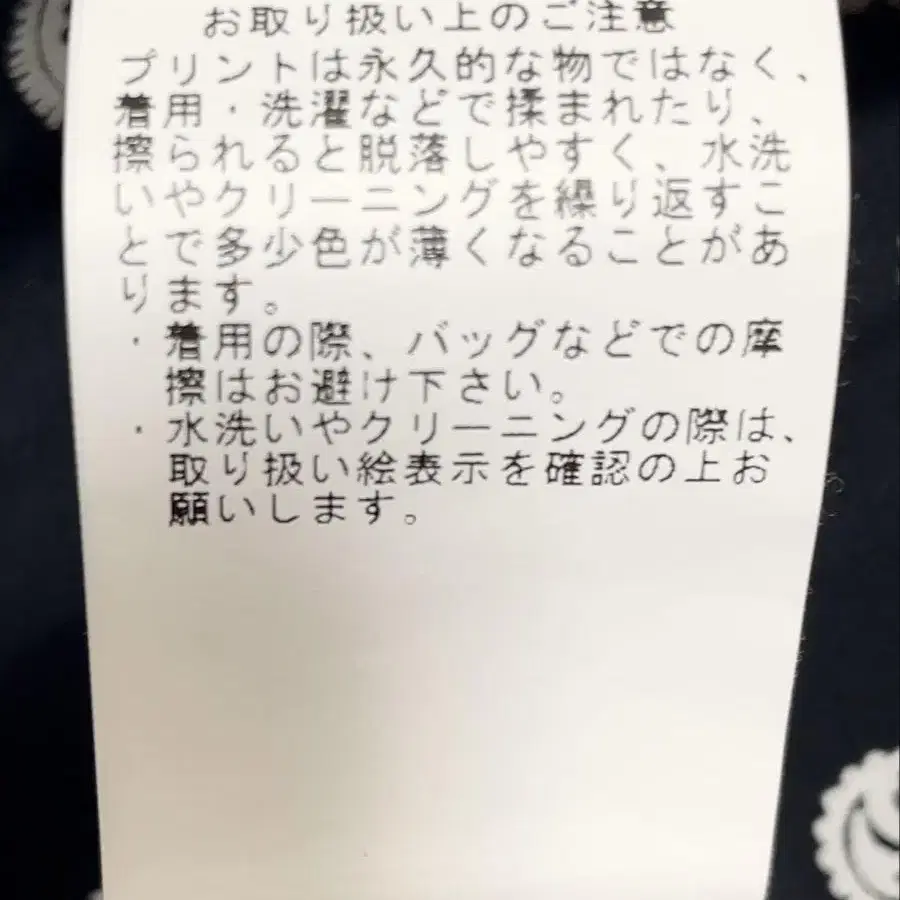 お取り扱い上のご注意
プリントは永久的な物ではなく、
着用・洗濯などで揉まれたり、
擦られると脱落しやすく、水洗
いやクリーニングを繰り返すこ
とで多少色が薄くなることがあ
ります。
・着用の際、バッグなどでの摩
擦はお避け下さい。
・水洗いやクリーニングの際は、
取り扱い絵表示を確認の上お
願いします。